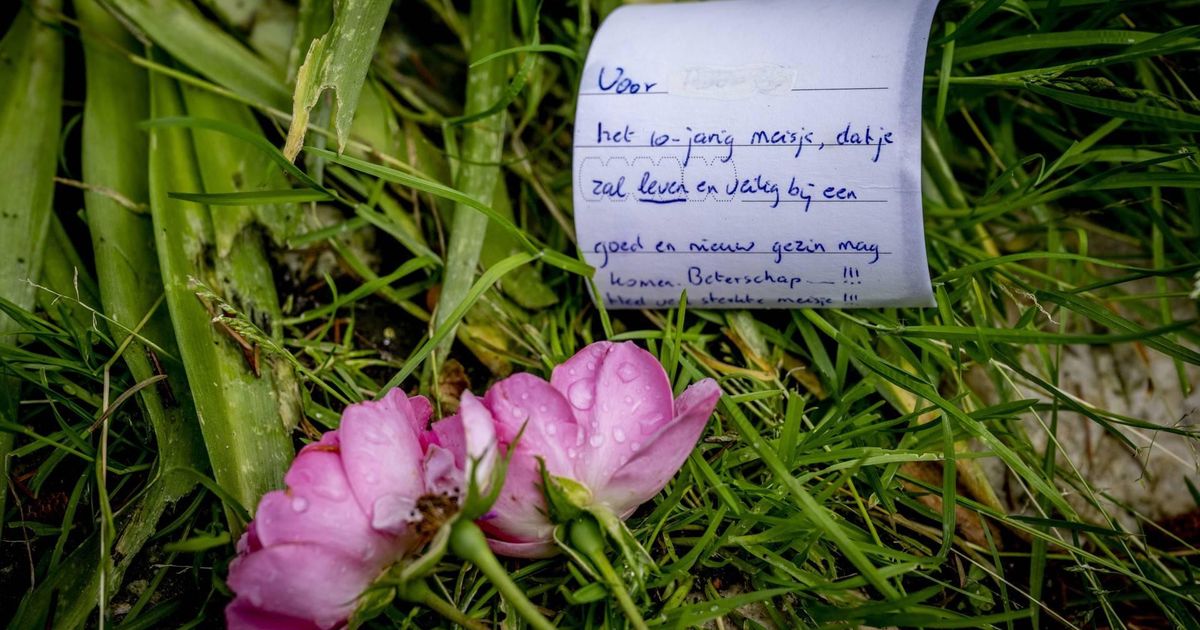 Voor
het 10-jarig meisje, dat je
zal leven en veilig bij een
goed en nieuw gezin mag
komen. Beterschap — !!!
Heel veel sterkte meisje !!!